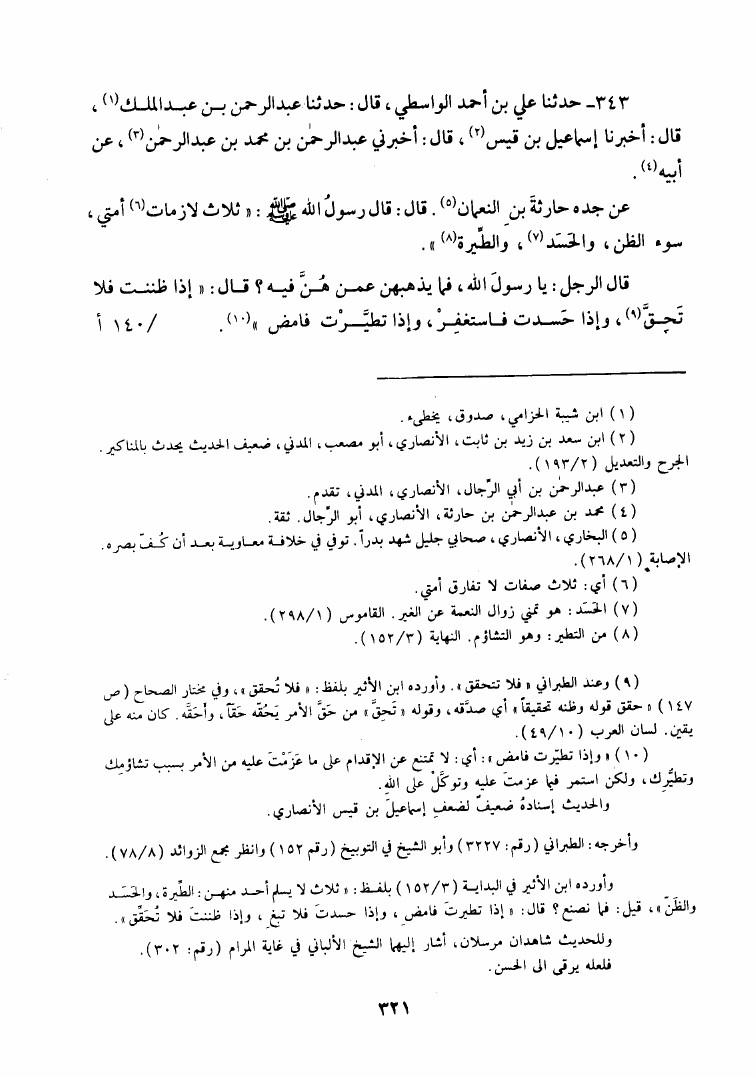 ٣٤٣ـ حدثنا علي بن أحمد الواسطي ، قال : حدثنا عبدالرحمن بـن عبـدالملـك(١) ،
قال : أخبرنا إسماعيل بن قيس(٢) ، قال : أخبرني عبدالرحمٰن بن محمد بن عبدالرحمٰن(٣) ، عن
أبيه(٤) .
عن جده حارثةَ بنِ النعمان(٥) . قال : قال رسولُ الله ﷺ : « ثلاث لازمات(٦) أمتي ،
سوء الظن ، والحَسَد(٧) ، والطِّيرة(٨) » .
قال الرجل : يا رسولَ الله ، فما يذهبهن عمـن هُـنَّ فيـه ؟ قـال : « إذا ظننـت فلا
تَحِـقَّ(٩) ، وإذا حَسـدت فـاستغفِـرْ ، وإذا تطيَّـرْت فامض »(١٠) . /١٤٠ أ
(١) ابن شيبة الحزامي، صدوق، يخطىء .
(٢) ابن سعد بن زيد بن ثابت، الأنصاري، أبو مصعب، المدني، ضعيف الحديث يحدث بالمناكير .
الجرح والتعديل (١٩٣/٢).
(٣) عبدالرحمٰن بن أبي الرِّجال، الأنصاري، المدني، تقدم.
(٤) محمد بن عبدالرحمٰن بن حارثة، الأنصاري، أبو الرِّجال. ثقة.
(٥) البخاري، الأنصاري، صحابي جليل شهد بدراً. توفي في خلافـة معـاويـة بعـد أن كُـفّ بصره.
الإصابة (٢٦٨/١).
(٦) أي: ثلاث صفات لا تفارق أمتي.
(٧) الحَسَد: هو تمني زوال النعمة عن الغير. القاموس (٢٩٨/١).
(٨) من التطير: وهو التشاؤم. النهاية (١٥٢/٣).
(٩) وعند الطبراني « فلا تتحقق ». وأورده ابن الأثير بلفظ: « فلا تُحقق »، وفي مختار الصحاح (ص
١٤٧) « حقق قوله وظنه تحقيقاً » أي صدَّقه، وقوله « تَحِقَّ » من حَقَّ الأمر يَحُقّه حَقّاً، وأَحَقَّه. كان منه على
يقين. لسان العرب (٤٩/١٠).
(١٠) « وإذا تطيّرت فامض »: أي: لا تمتنع عن الإقدام على ما عَزَمْتَ عليه من الأمر بسبب تشاؤمِك
وتطيُّرِك، ولكن استمر فيما عزمتَ عليه وتوكَّلْ على اللهِ.
والحديث إسنادهُ ضعيفٌ لضعفِ إسماعيلَ بن قيس الأنصاري.
وأخرجه: الطبراني (رقم: ٣٢٢٧) وأبو الشيخ في التوبيخ (رقم ١٥٢) وانظر مجمع الزوائد (٧٨/٨).
وأورده ابن الأثير في البدايـة (١٥٢/٣) بلفـظ: « ثلاث لا يسلم أحـد منهـن: الطِّيرة، والحَسَـد
والظَّنّ »، قيل: فما نصنع؟ قال: « إذا تطيرتَ فامضِ، وإذا حسدتَ فلا تبغِ، وإذا ظننتَ فلا تُحَقِّق ».
وللحديث شاهدان مرسلان، أشار إليهما الشيخ الألباني في غاية المرام (رقم: ٣٠٢).
فلعله يرقى الى الحسن.
٣٢١